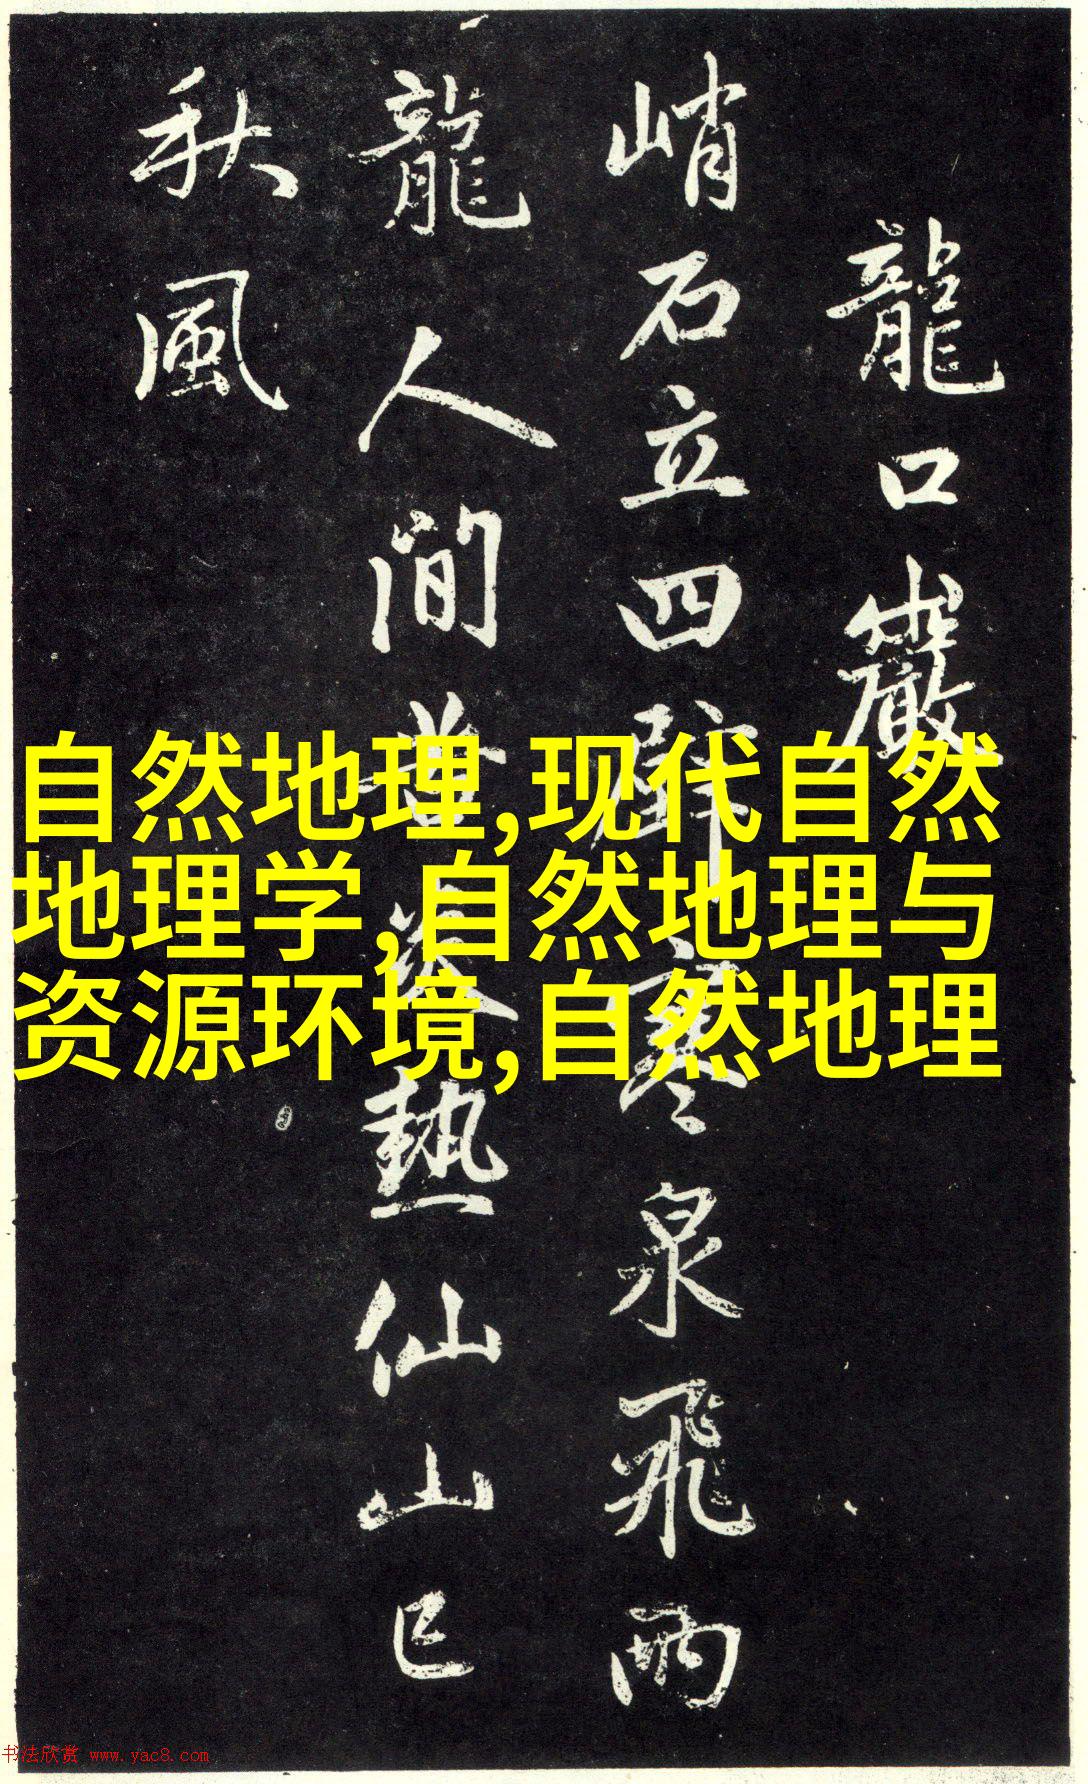 龍口巖
峭石立四壁寒泉飛兩
龍人間苦炎熱仙山已
秋風
自然地理,现代自然
地理学,自然地理与
资源环境,自然地理
书法欣赏 www.yac8.com